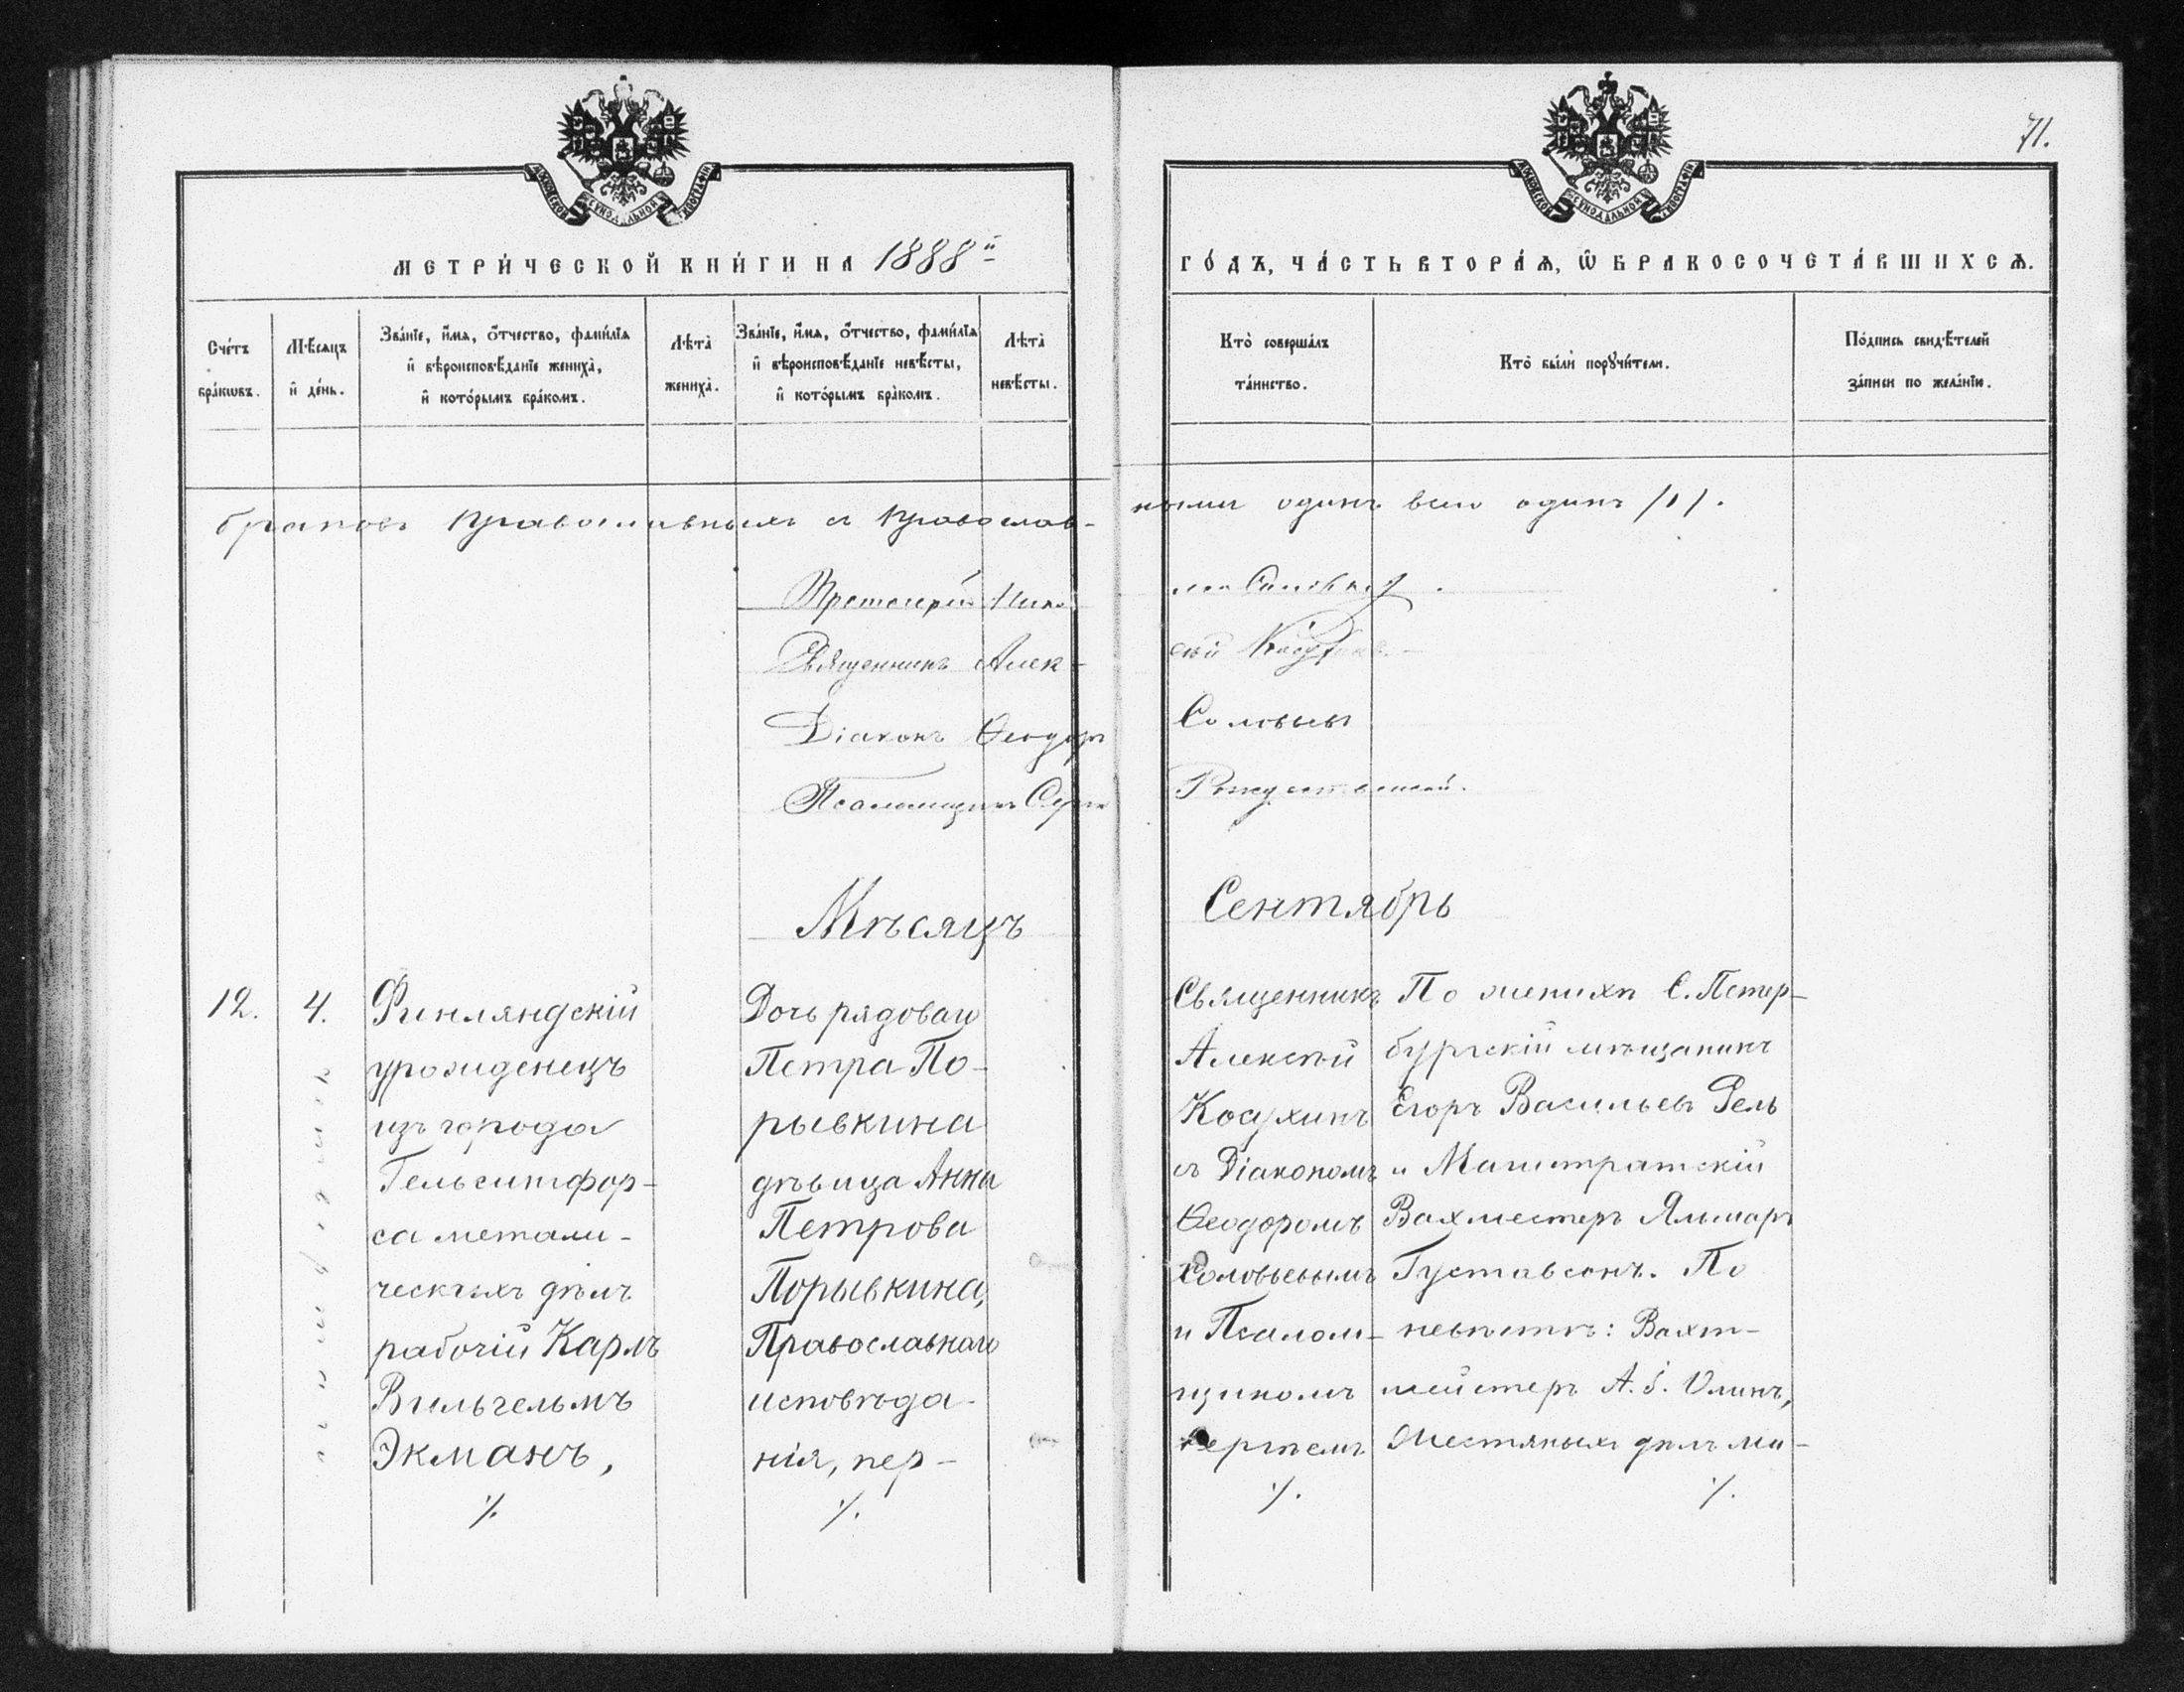 71.
МЕТРИ́ЧЕСКОЙ КНИ́ГИ НА 1888й
ГО́ДЪ, ЧА́СТЬ ВТОРА́Ѧ, Ѡ БРАКОСОЧЕТА́ВШИХСѦ.
Сче́тъ бра́кѡвъ.
Мѣ́сяцъ и҆ де́нь.
Зва́нїе, и҆́мѧ, ѻ҆́тчество, фами́лїѧ
и҆ вѣроисповѣ́данїе жениха̀,
и҆ кото́рымъ бра́комъ.
Лѣта̀ жениха̀.
Зва́нїе, и҆́мѧ, ѻ҆́тчество, фами́лїѧ
и҆ вѣроисповѣ́данїе невѣ́сты,
и҆ кото́рымъ бра́комъ.
Лѣта̀ невѣ́сты.
Кто̀ соверша́лъ
та́инство.
Кто̀ бы́ли порꙋчи́тели.
По́дпись свидѣ́телей
за́писи по жела́нїю.
браковъ православныхъ съ православ-
ными одинъ всего одинъ /1/.
Протоіерей Нико
Священникъ Алек-
сѣй
Діаконъ Ѳеодоръ
Соловьевъ
Псаломщикъ Сергѣй
Рождественскій.
Мѣсяцъ
Сентябрь
12.
4.
Финляндскій
уроженецъ
изъ города
Гельсингфор-
са метали-
ческихъ дѣлъ
рабочій Карлъ
Вильгельмъ
Экманъ,
٪.
Дочь рядоваго
Петра По-
рывкина
дѣвица Анна
Петрова
Порывкина,
Православнаго
исповѣда-
нія, пер-
٪.
Священникъ
Алексѣй
Косухинъ
съ Діакономъ
Ѳеодоромъ
Соловьевымъ
и Псалом-
щикомъ
Сергѣемъ
٪.
По женихѣ С. Петер-
бургскій мѣщанинъ
Егоръ Васильевъ Рель
и Магистратскій
Вахмистеръ Яльмаръ
Густавсонъ. По
невѣстѣ: Вахт-
мейстеръ А. Олинъ,
Жестяныхъ дѣлъ ма-
٪.